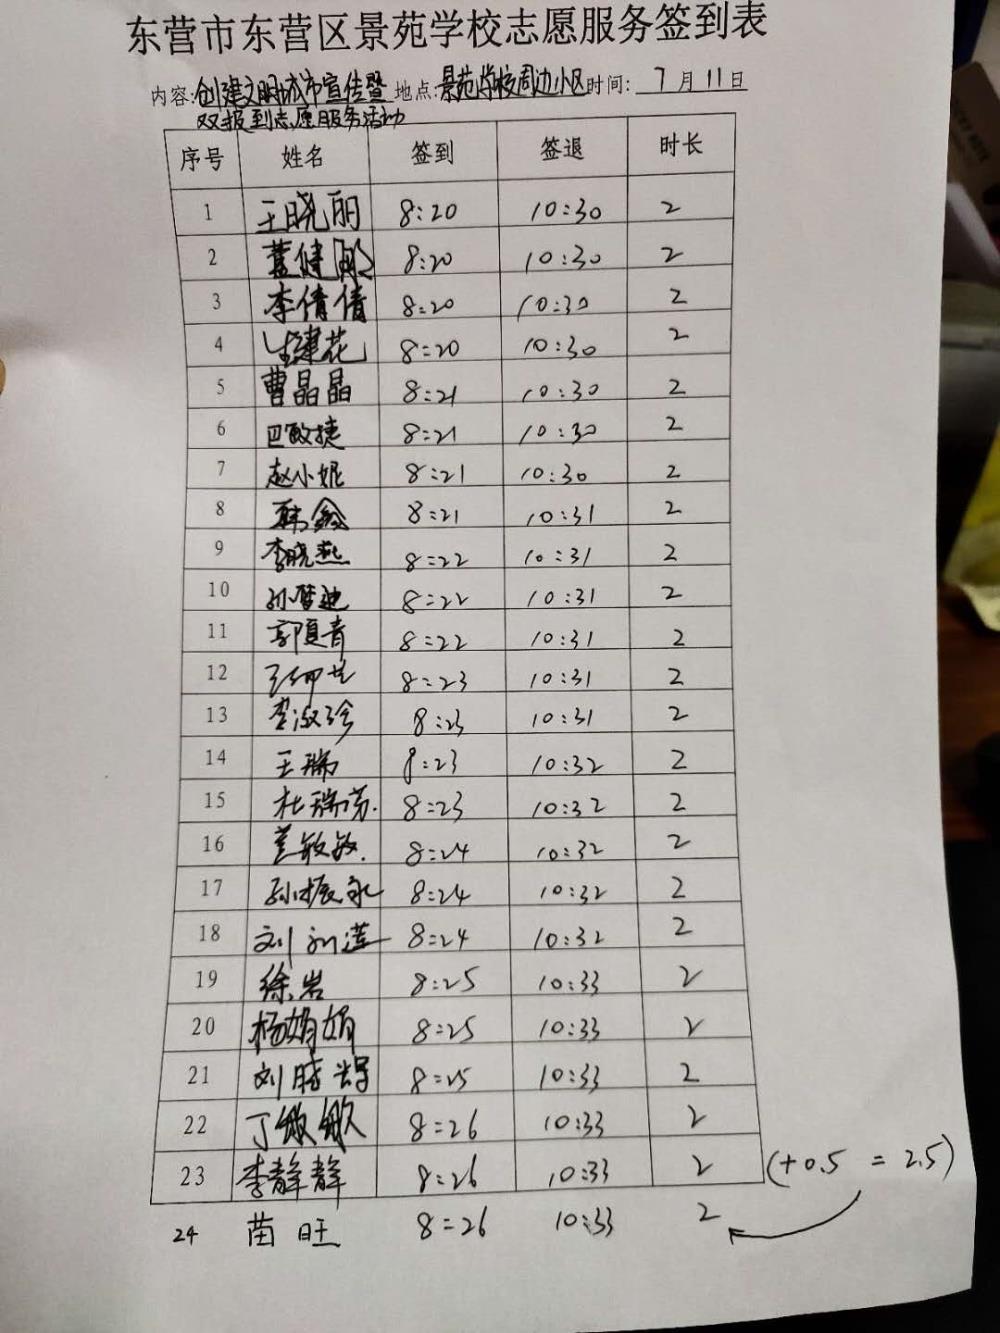 东营市东营区景苑学校志愿服务签到表
内容:创建文明城市宣传暨 地点:景苑学校周边小区 时间: 7月11日
双报到志愿服务活动
序号 姓名 签到 签退 时长
1 王晓丽 8:20 10:30 2
2 8:20 10:30 2
3 李倩倩 8:20 10:30 2
4 生建花 8:20 10:30 2
5 曹晶晶 8:21 10:30 2
6 巴敏捷 8:21 10:30 2
7 赵小妮 8:21 10:30 2
8 韩鑫 8:21 10:31 2
9 李晓燕 8:22 10:31 2
10 孙梦迪 8:22 10:31 2
11 郭夏青 8:22 10:31 2
12 8:23 10:31 2
13 李淑珍 8:23 10:31 2
14 王瑞 8:23 10:32 2
15 杜瑞芳 8:23 10:32 2
16 敏敏 8:24 10:32 2
17 孙振永 8:24 10:32 2
18 刘莲 8:24 10:32 2
19 徐岩 8:25 10:33 2
20 杨娟娟 8:25 10:33 2
21 刘 8:25 10:33 2
22 丁敏敏 8:26 10:33 2
23 李静静 8:26 10:33 2 (+0.5=2.5)
24 苗旺 8:26 10:33 2